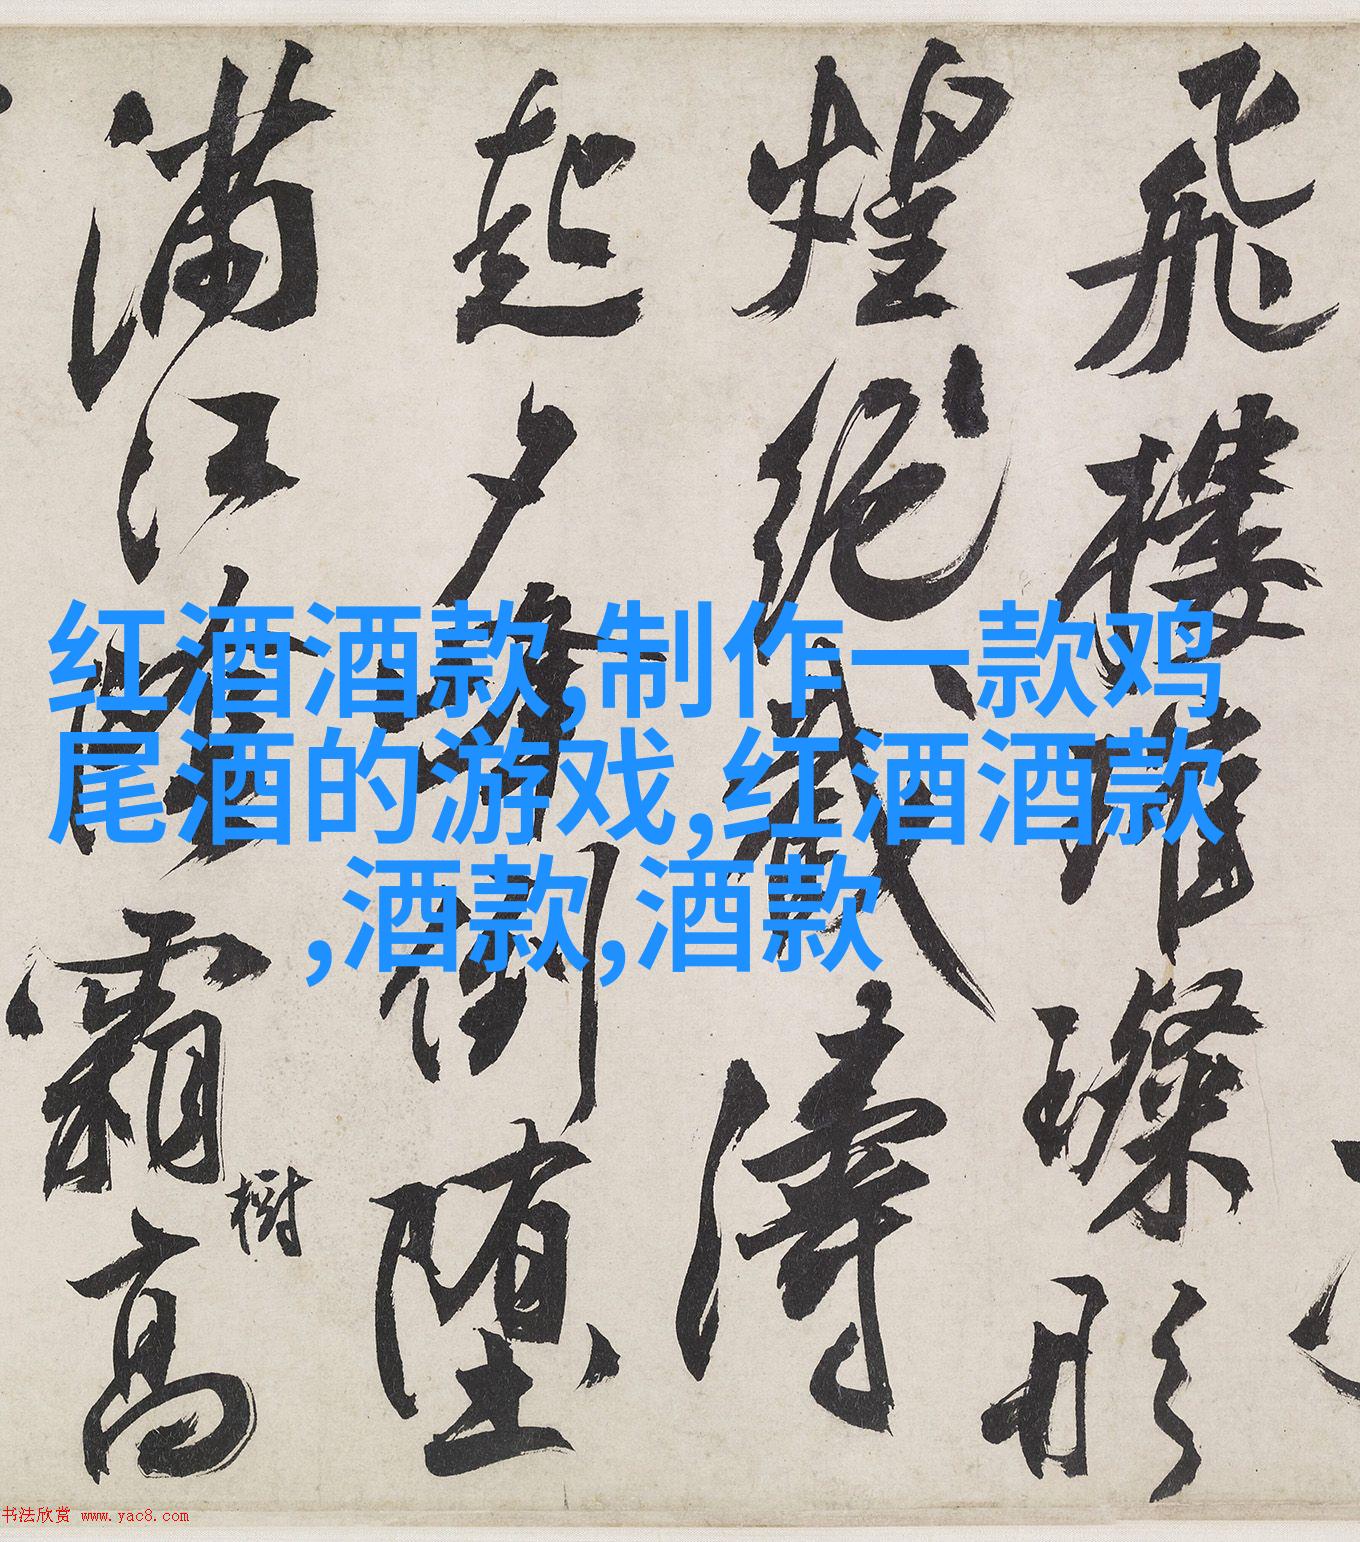 飛樓堆璨形
煌絕。截濤
起夕峰倒堕
满江
霜高
樹
红酒酒款,制作一款鸡
尾酒的游戏,红酒酒款
,酒款,酒款
书法欣赏 www.yac8.com